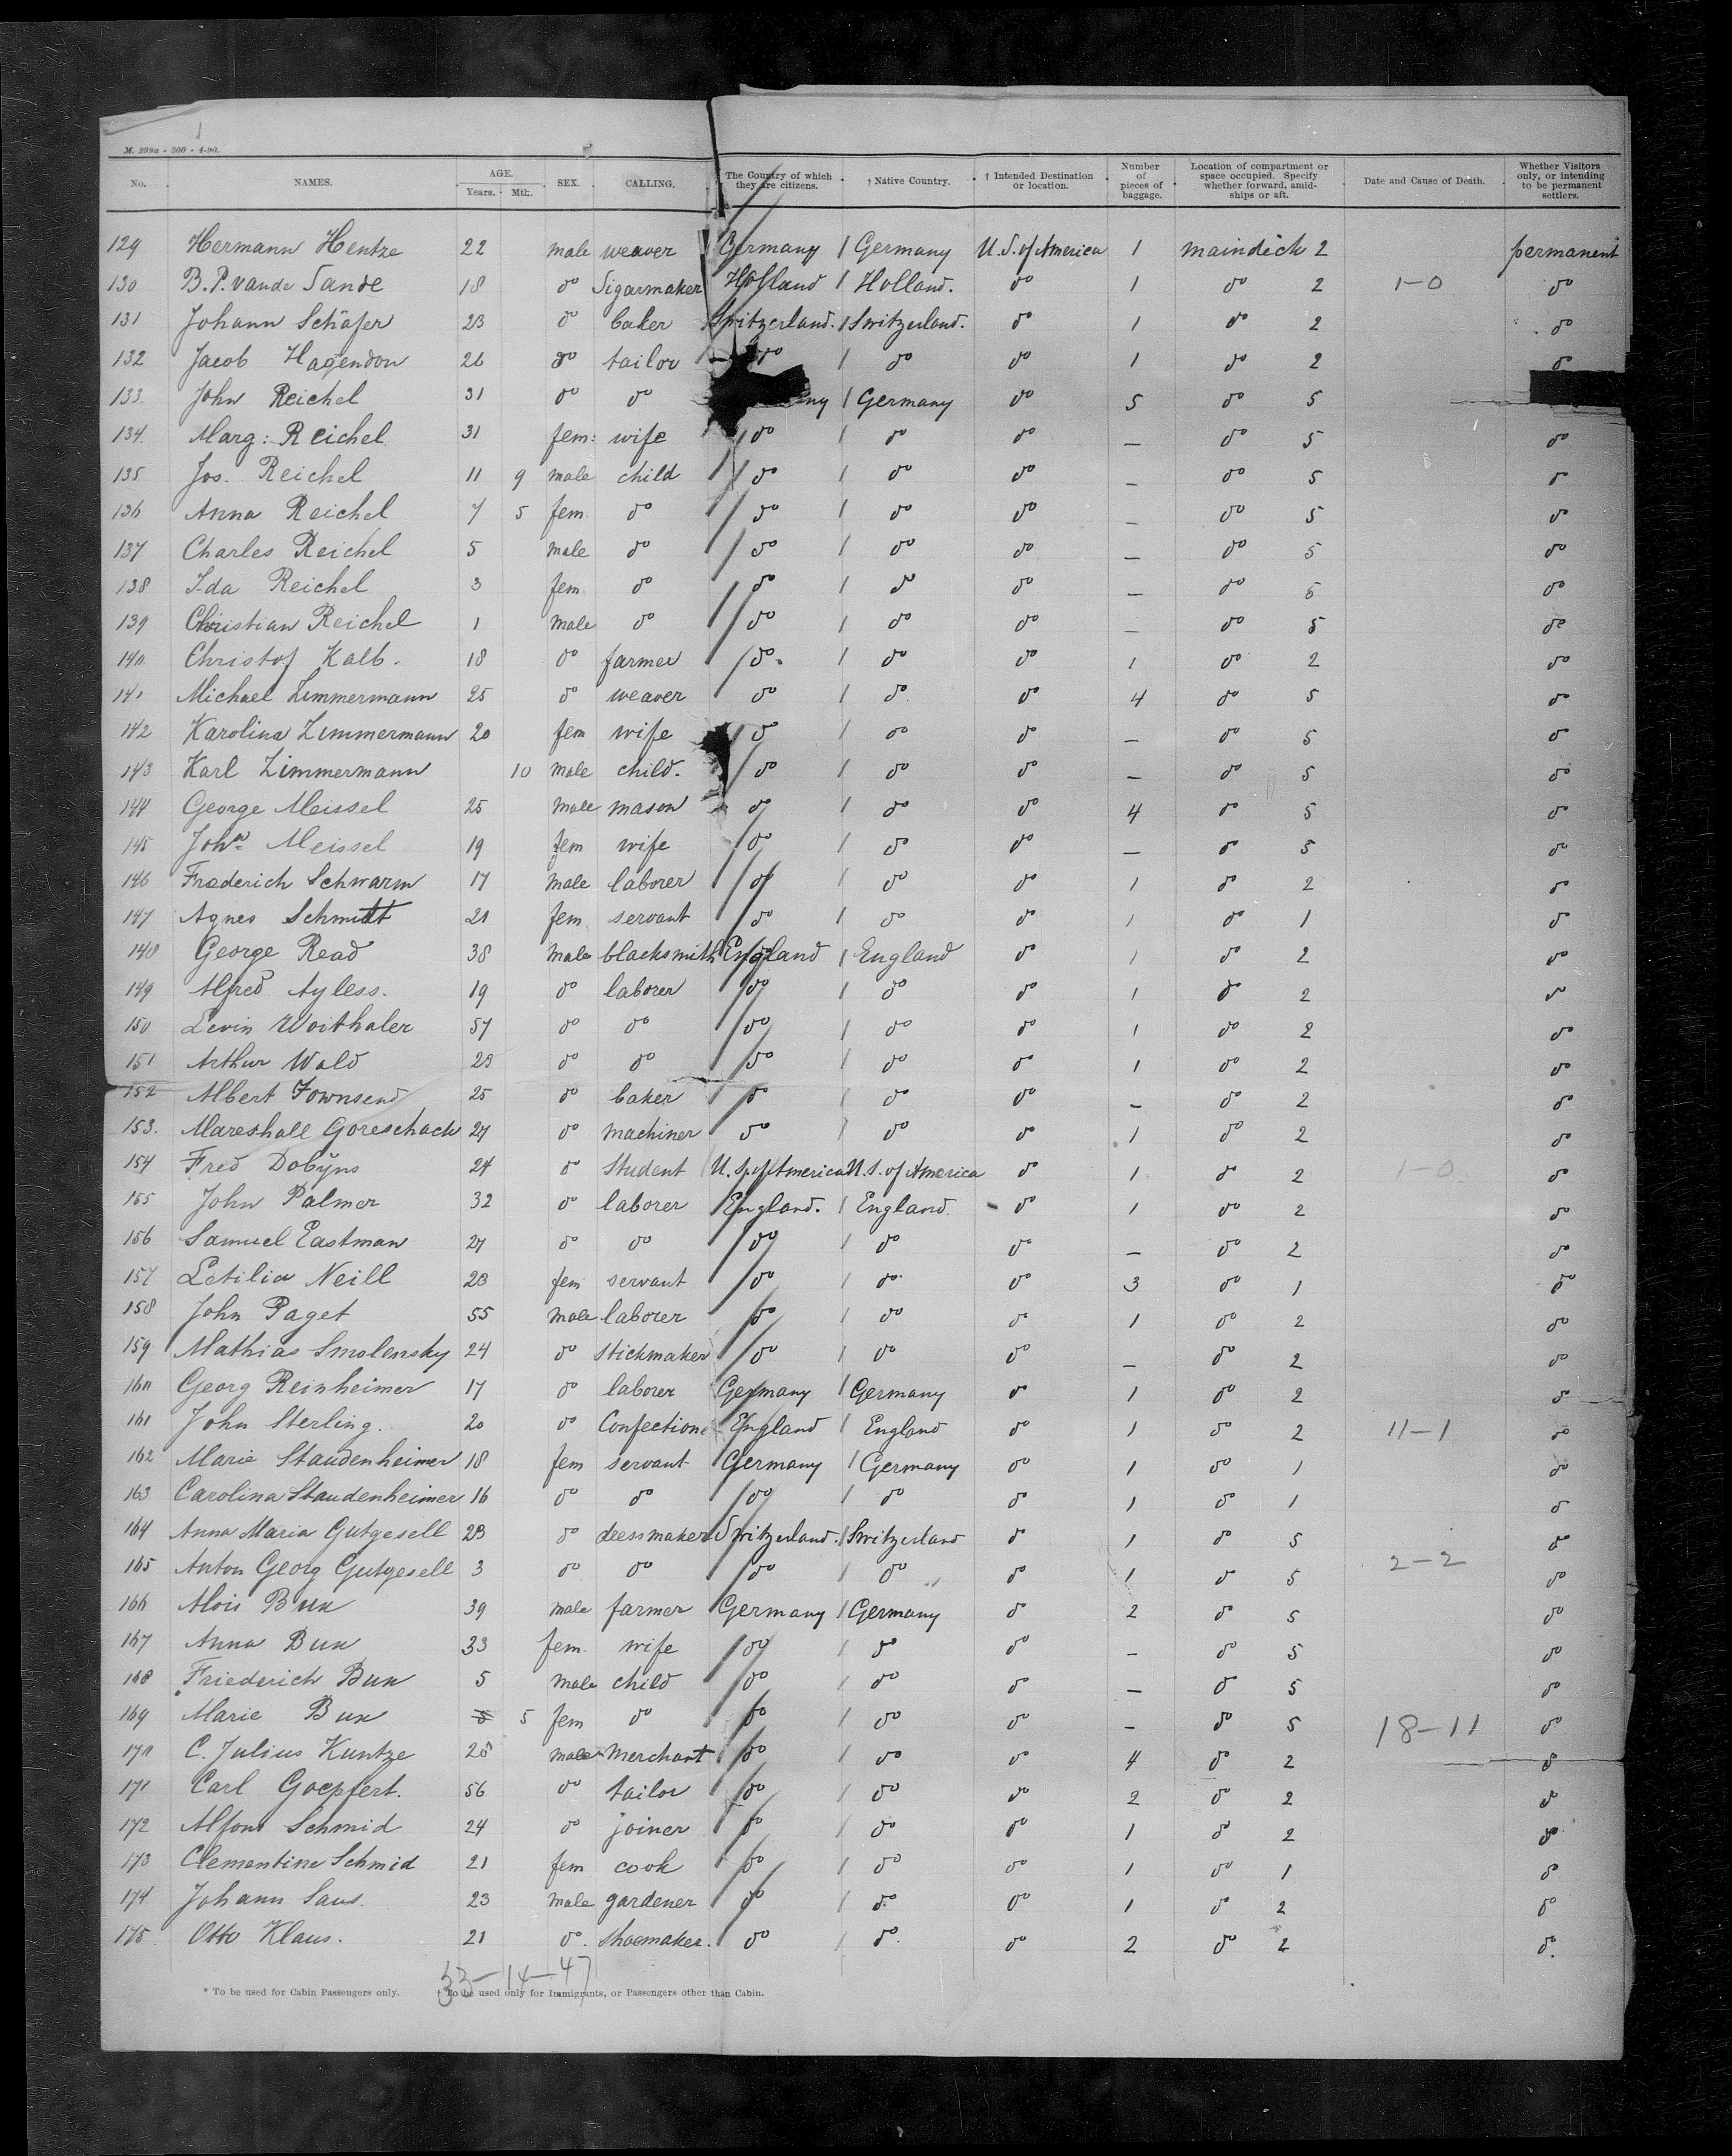 M. 299a - 300 - 4-90.
No. NAMES. AGE. Years. Mth. SEX. CALLING. The Country of which they are citizens. † Native Country. † Intended Destination or location. Number of pieces of baggage. Location of compartment or space occupied. Specify whether forward, amidships or aft. Date and Cause of Death. Whether Visitors only, or intending to be permanent settlers.
129 Hermann Hentze 22 male weaver Germany / Germany U.S. of America 1 maindeck 2 permanent
130 B. P. vande Sande 18 do Sigarmaker Holland / Holland. do 1 do 2 1-0 do
131 Johann Schäfer 23 do baker Switzerland. / Switzerland. do 1 do 2 do
132 Jacob Hagendon 26 do tailor do / do do 1 do 2 do
133. John Reichel 31 do do ny / Germany do 5 do 5
134. Marg: Reichel 31 fem: wife do / do do — do 5 do
135 Jos. Reichel 11 9 male child do / do do — do 5 do
136 Anna Reichel 7 5 fem. do do / do do — do 5 do
137 Charles Reichel 5 male do do / do do — do 5 do
138 Ida Reichel 3 fem. do do / do do — do 5 do
139 Christian Reichel 1 male do do / do do — do 5 do
140 Christof Kalb. 18 do farmer do / do do 1 do 2 do
141 Michael Zimmermann 25 do weaver do / do do 4 do 5 do
142 Karolina Zimmermann 20 fem wife do / do do — do 5 do
143 Karl Zimmermann 10 male child. do / do do — do 5 do
144 George Meissel 25 male mason do / do do 4 do 5 do
145 Joh^a Meissel 19 fem wife do / do do — do 5 do
146 Frederich Schwarm 17 male laborer do / do do 1 do 2 do
147 Agnes Schmidt 21 fem servant do / do do 1 do 1 do
148 George Read 38 male blacksmith England / England do 1 do 2 do
149 Alfred Ayless. 19 do laborer do / do do 1 do 2 do
150 Levin Woithaler 57 do do do / do do 1 do 2 do
151 Arthur Wald 23 do do do / do do 1 do 2 do
152 Albert Townsend 25 do baker do / do do — do 2 do
153. Mareshall Goreschack 27 do machiner do / do do 1 do 2 do
154 Fred Dobyns 24 do Student U.S. of America U.S. of America do 1 do 2 1-0 do
155 John Palmer 32 do laborer England. / England. do 1 do 2 do
156 Samuel Eastman 27 do do do / do do — do 2 do
157 Letilia Neill 23 fem servant do / do do 3 do 1 do
158 John Paget 55 male laborer do / do do 1 do 2 do
159 Mathias Smolensky 24 do stickmaker do / do do — do 2 do
160 Georg Reinheimer 17 do laborer Germany / Germany do 1 do 2 do
161 John Sterling. 20 do Confectione England / England do 1 do 2 11-1 do
162 Marie Staudenheimer 18 fem servant Germany / Germany do 1 do 1 do
163 Carolina Staudenheimer 16 do do do / do do 1 do 1 do
164 Anna Maria Gutgesell 23 do dressmaker Switzerland. / Switzerland do 1 do 5 do
165 Anton Georg Gutgesell 3 do do do / do do 1 do 5 2-2 do
166 Alois Bux 39 male farmer Germany / Germany do 2 do 5 do
167 Anna Bux 33 fem. wife do / do do — do 5 do
168 Friederich Bux 5 male child do / do do — do 5 do
169 Marie Bux 5 fem do do / do do — do 5 18-11 do
170 C. Julius Kuntze 28 male merchant do / do do 4 do 2 do
171 Carl Goepfert. 56 do tailor do / do do 2 do 2 do
172 Alfons Schmid 24 do joiner do / do do 1 do 2 do
173 Clementine Schmid 21 fem cook do / do do 1 do 1 do
174 Johann Saus. 23 male gardener do / do do 1 do 2 do
175. Otto Klaus. 21 do. shoemaker. do / do. do 2 do 2 do.
33-14-47
* To be used for Cabin Passengers only. † To be used only for Immigrants, or Passengers other than Cabin.